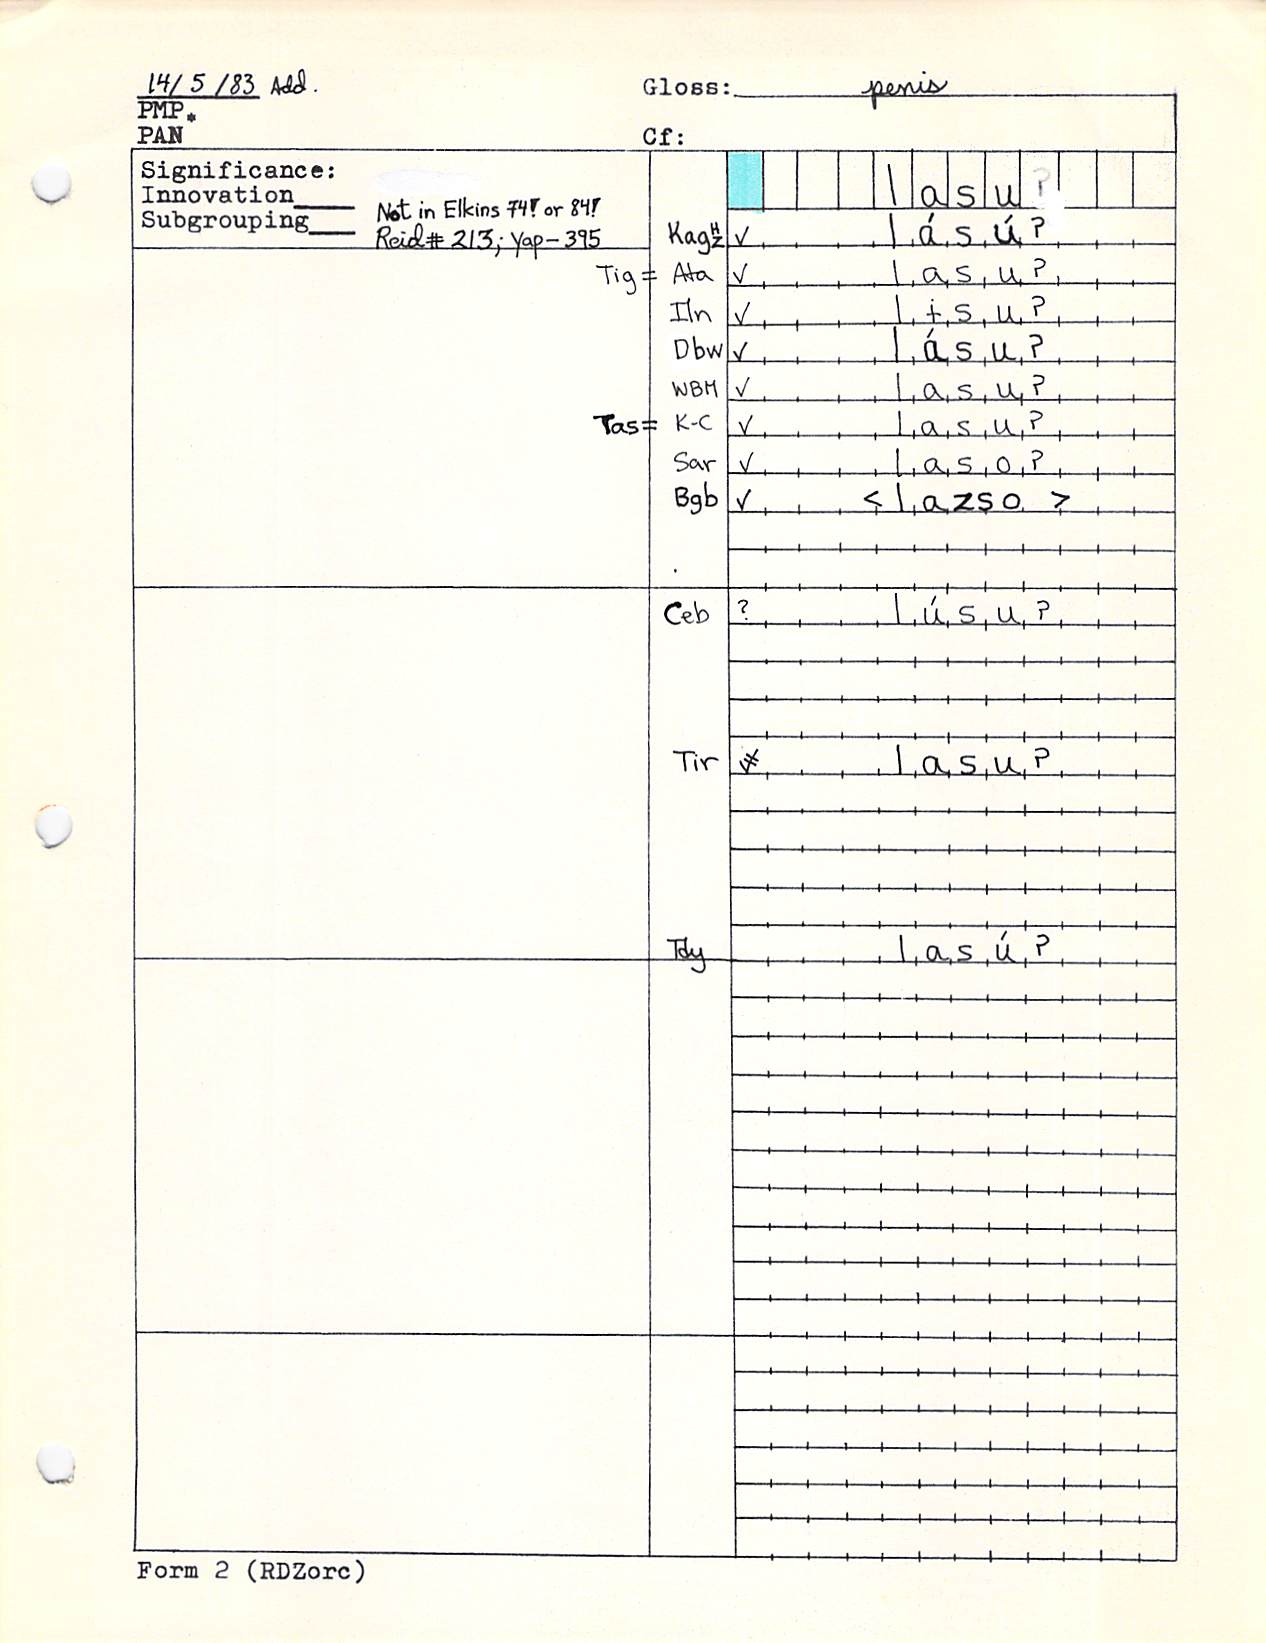 14/ 5 /83 Add.
Gloss: penis
PMP *
PAN
Cf:
Significance:
Innovation____
Subgrouping___
Not in Elkins 74! or 84!
Reid # 213; Yap-395
l a s u ?
Kag H/Z ✓ l á s ú ?
Tig = Ata ✓ l a s u ?
Iln ✓ l ɨ s u ?
Dbw ✓ l á s u ?
WBM ✓ l a s u ?
Tas = K-C ✓ l a s u ?
Sar ✓ l a s o ?
Bgb ✓ < l a z s o >
Ceb ? l ú s u ?
Tir l a s u ?
Tdy l a s ú ?
Form 2 (RDZorc)